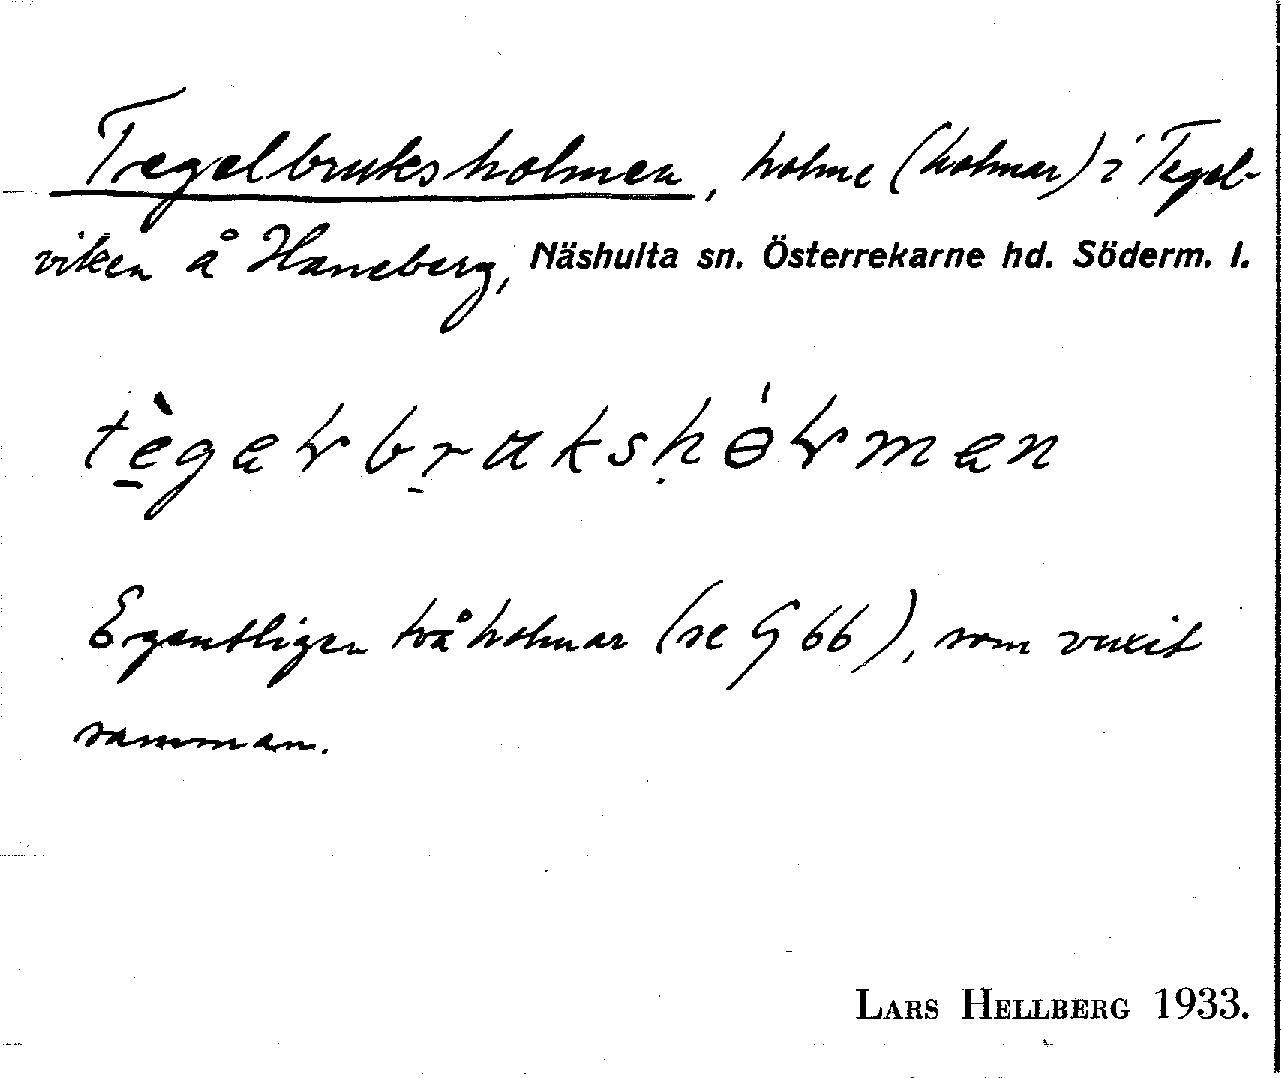 Tegelbruksholmen, holme (holmar) i Tegel-
viken å Haneberg, Näshulta sn. Österrekarne hd. Söderm. l.
Egentligen två holmar (se G 66), som vuxit
samman.
LARS HELLBERG 1933.